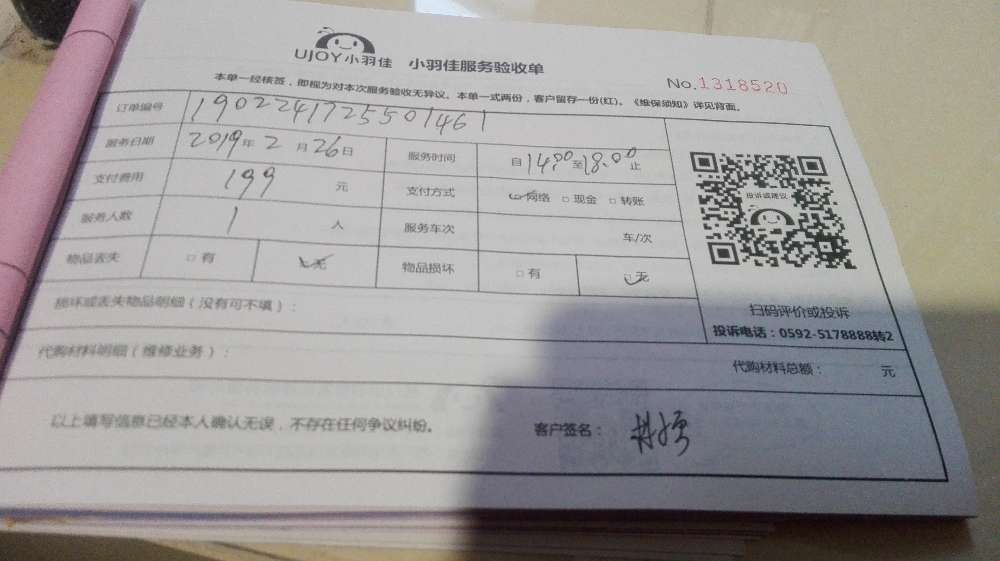 UJOY小羽佳 小羽佳服务验收单
No.1318520
本单一经核签，即视为对本次服务验收无异议。本单一式两份，客户留存一份(红)。《维保须知》详见背面。
订单编号 1902241725501461
服务日期 2019年2月26日 服务时间 自14:00至18:00止
支付费用 199元 支付方式 网络 □现金 □转账
服务人数 1人 服务车次 车/次
物品丢失 □有 无 物品损坏 □有 无
投诉或建议
扫码评价或投诉
投诉电话：0592-5178888转2
损坏或丢失物品明细（没有可不填）：
代购材料明细（维修业务）：
代购材料总额： 元
以上填写信息已经本人确认无误，不存在任何争议纠纷。 客户签名：